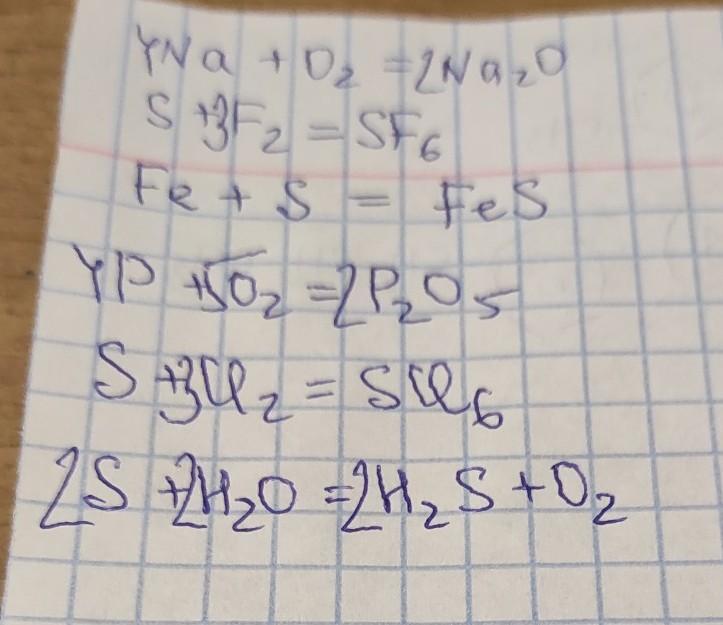 4Na + O₂ = 2Na₂O
S + 3F₂ = SF₆
Fe + S = FeS
4P + 5O₂ = 2P₂O₅
S + 3Cl₂ = SCl₆
2S + 2H₂O = 2H₂S + O₂